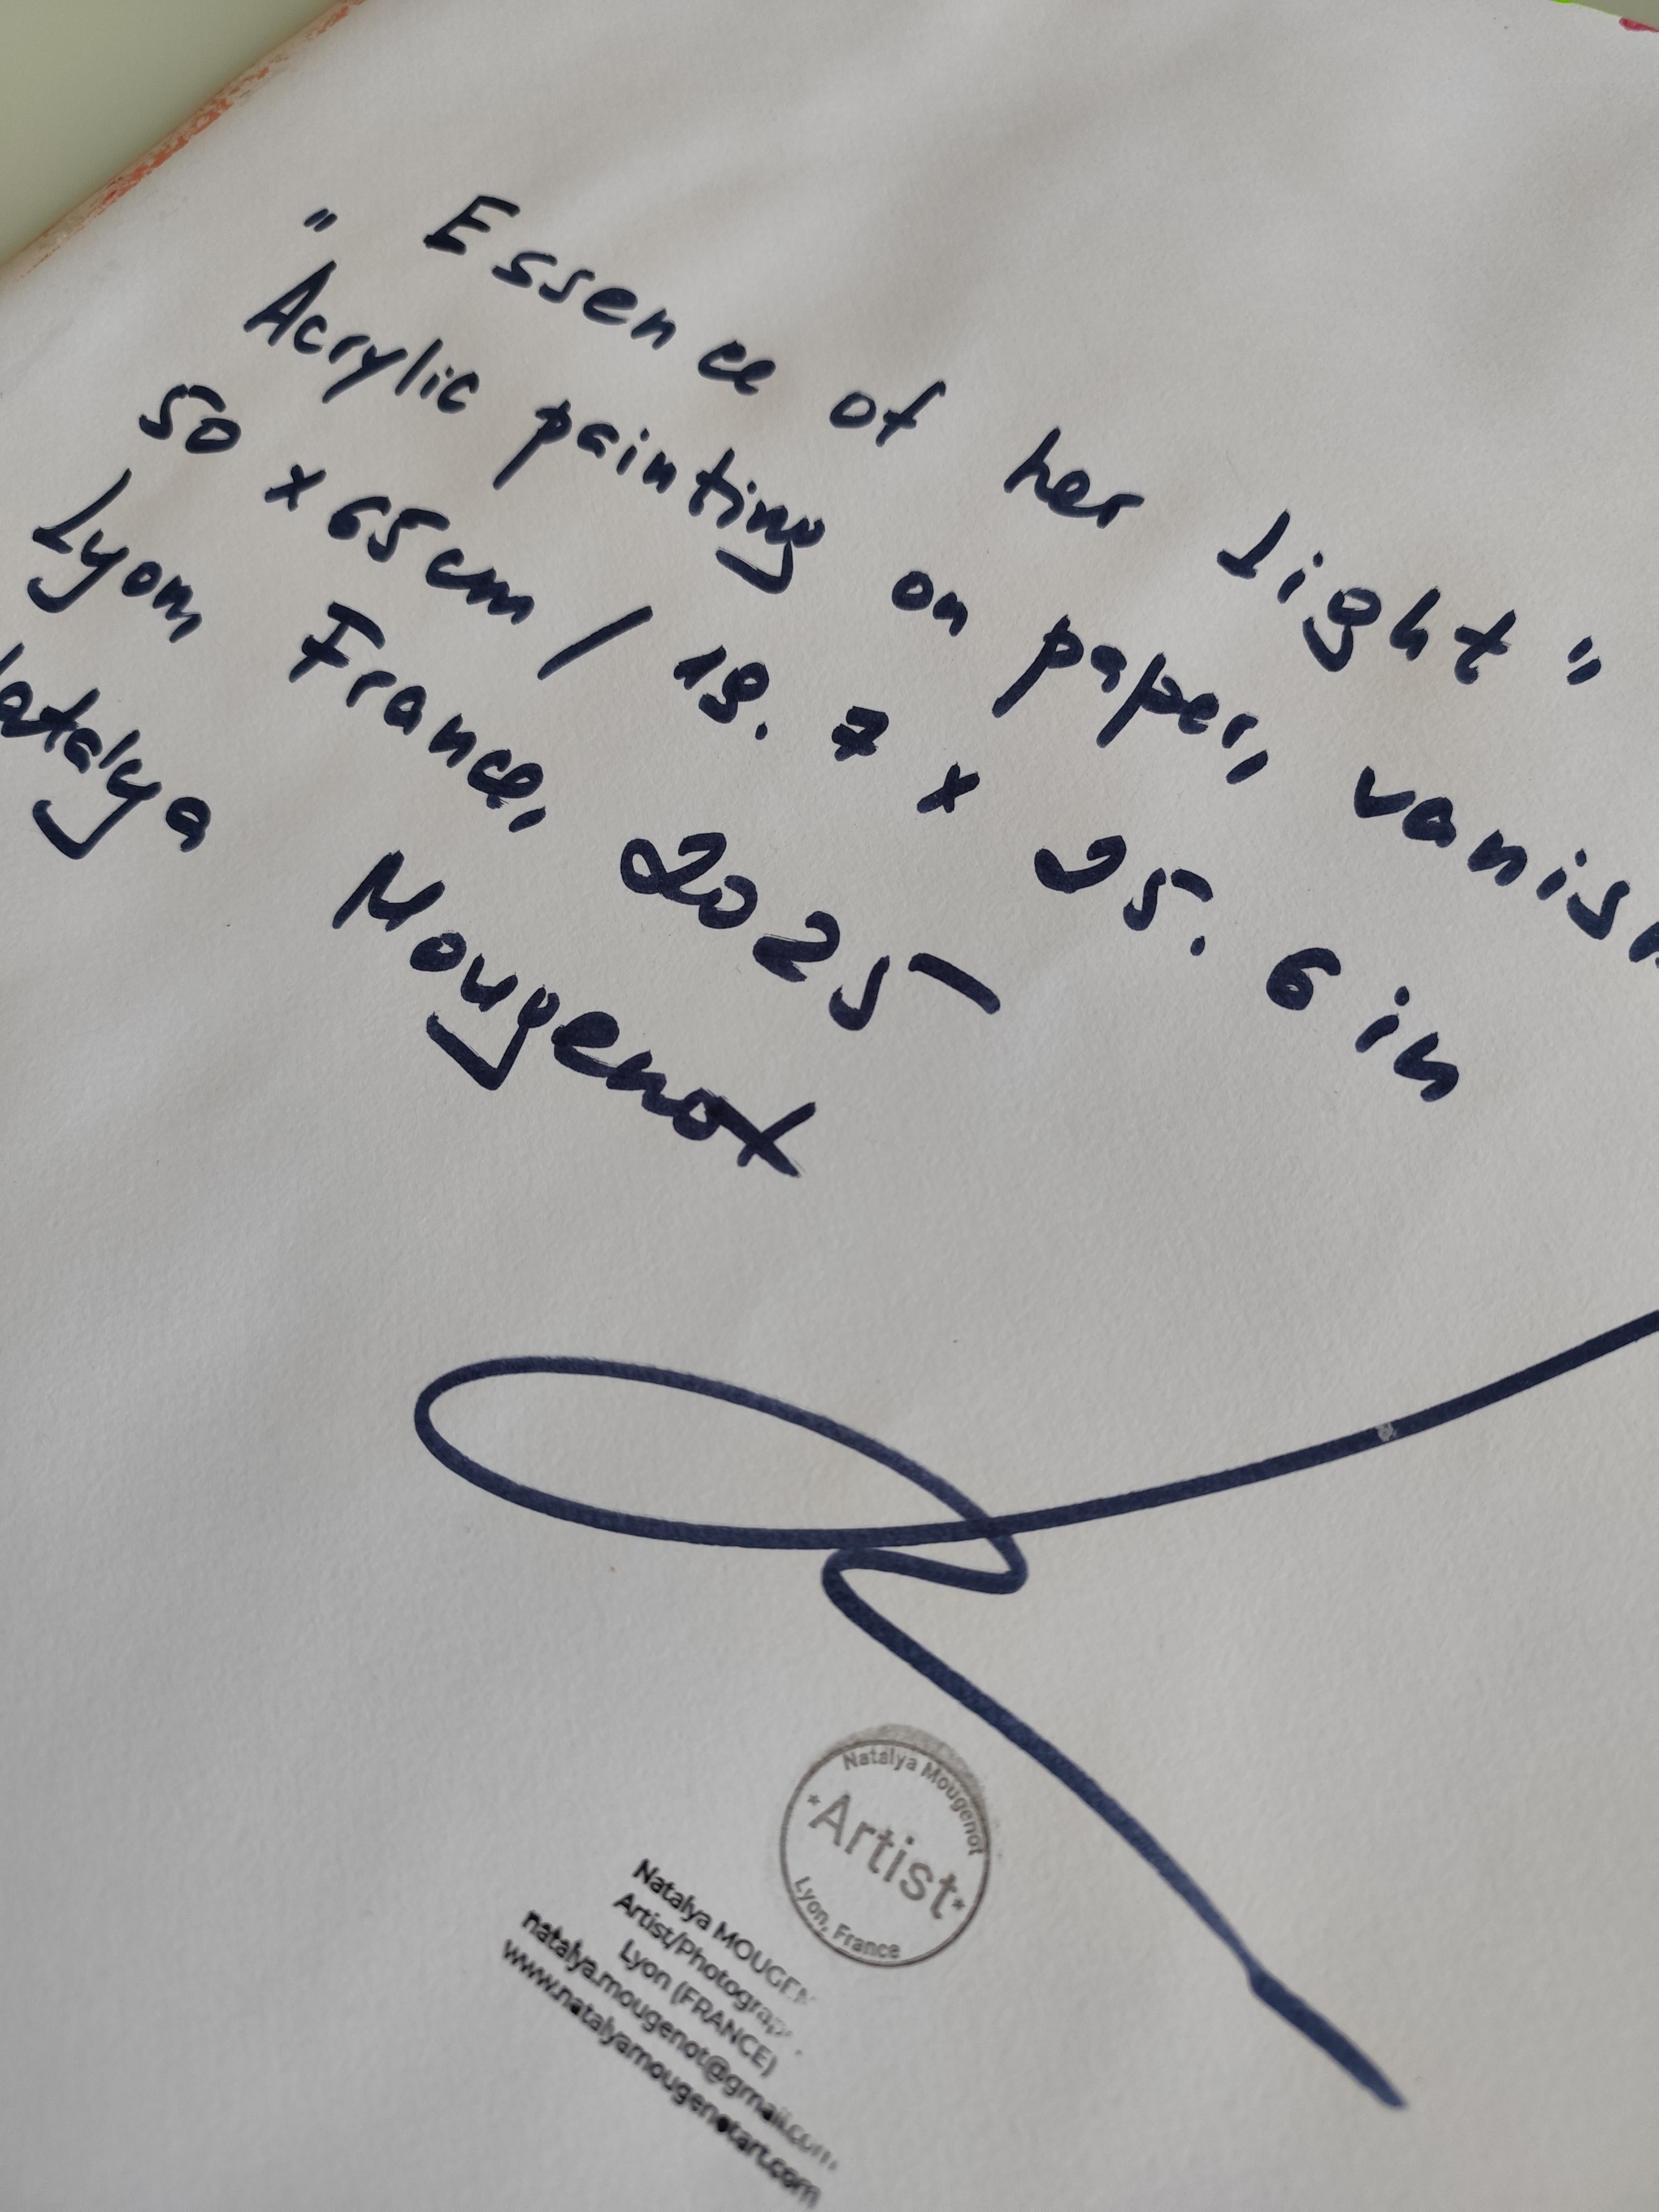 " Essence of her light "
Acrylic painting on paper, vanish
50 x 65 cm / 19.7 x 25.6 in
Lyon France, 2025
Natalya Mougenot
Natalya Mougenot
*Artist*
Lyon, France
Natalya MOUGEN
Artist/Photograp
Lyon (FRANCE)
natalya.mougenot@gmail.com
www.natalyamougenotart.com